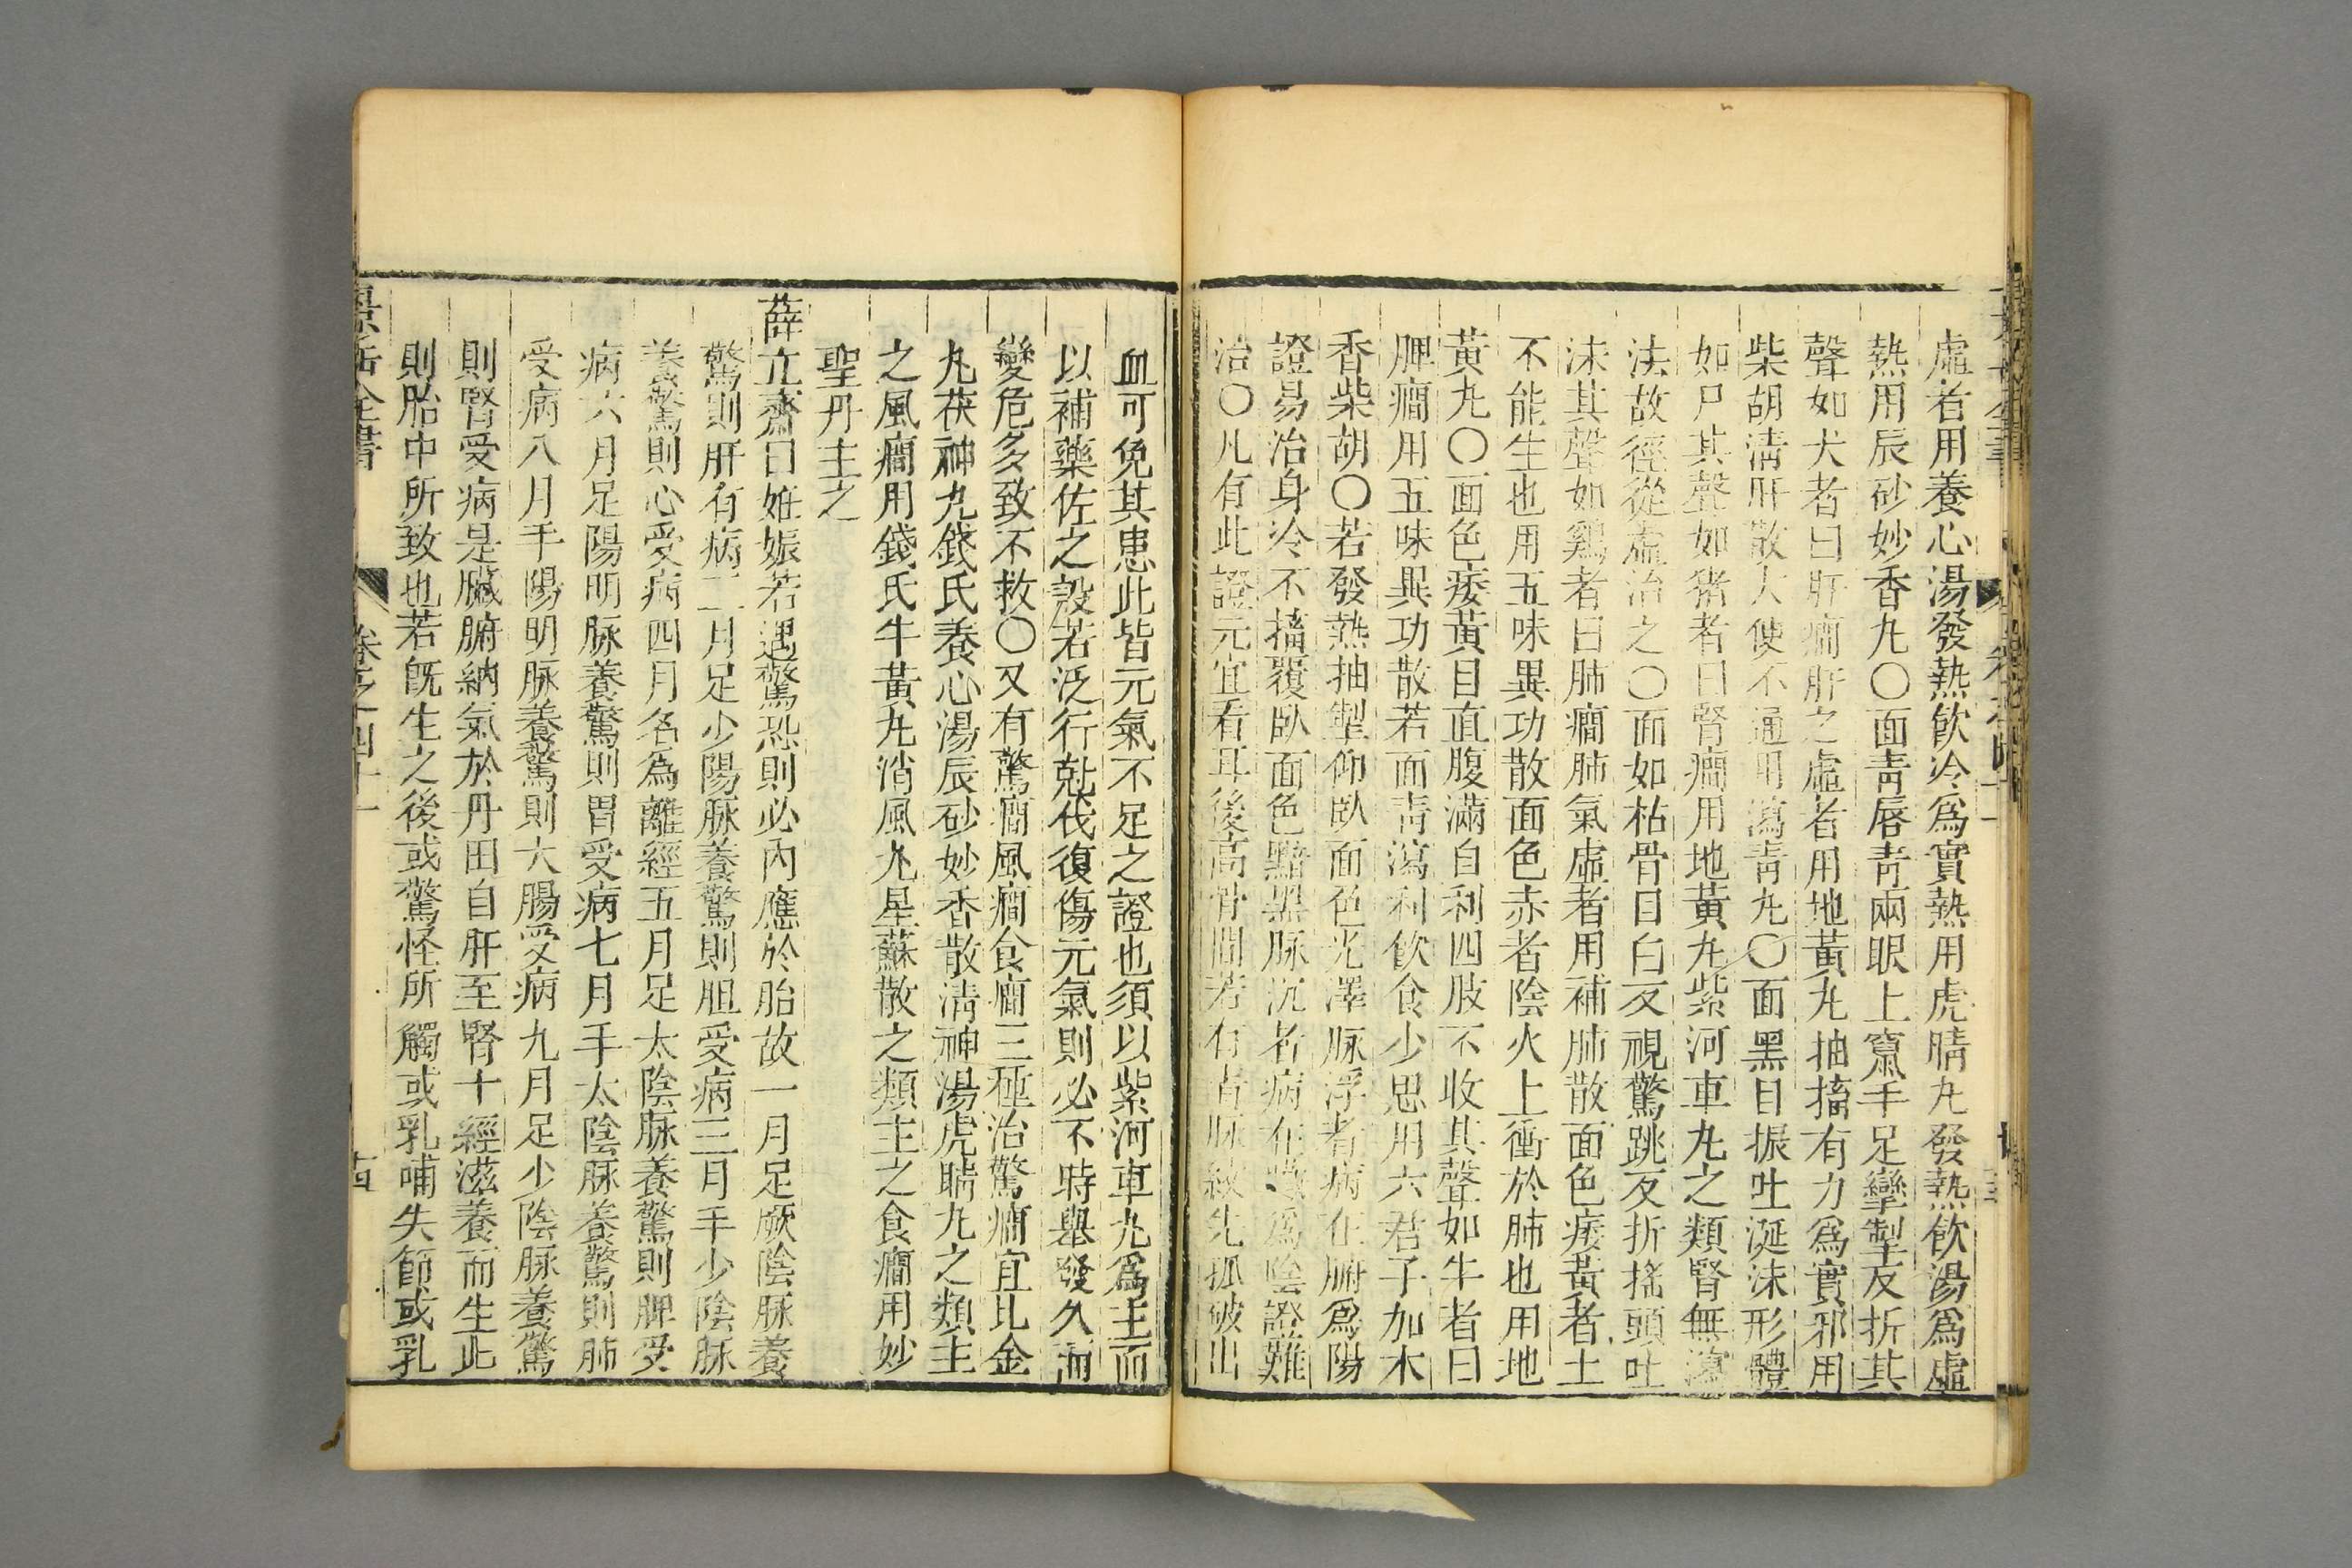 虛者用養心湯發熱飲冷爲實熱用虎睛丸發熱飲湯爲虛
熱用辰砂妙香丸〇面靑唇靑兩眼上竄手足攣掣反折其
聲如犬者曰肝癎肝之虛者用地黃丸抽搐有力爲實邪用
柴胡淸肝散大便不通用瀉靑丸〇面黑目振吐涎沫形體
如尸其聲如猪者曰腎癎用地黃丸紫河車丸之類腎無瀉
法故徑從虛治之〇面如枯骨目白反視驚跳反折搖頭吐
沫其聲如鷄者曰肺癎肺氣虛者用補肺散面色痿黃者土
不能生也用五味異功散面色赤者陰火上衝於肺也用地
黃丸〇面色痿黃目直腹滿自利四肢不收其聲如牛者曰
脾癎用五味異功散若面靑瀉利飮食少思用六君子加木
香柴胡〇若發熱抽掣仰臥面色光澤脉浮者病在腑爲陽
證易治身冷不搐覆臥面色黯黑脉沉者病在臟爲陰證難
治〇凡有此證元宜看耳後高骨間若有靑脉紋先抓破出
血可免其患此皆元氣不足之證也須以紫河車丸爲主而
以補藥佐之設若泛行尅伐復傷元氣則必不時舉發久而
變危多致不救〇又有驚癎風癎食癎三種治驚癎宜比金
丸茯神丸錢氏養心湯辰砂妙香散淸神湯虎睛丸之類主
之風癎用錢氏牛黃丸消風丸星蘇散之類主之食癎用妙
聖丹主之
薛立齋曰妊娠若遇驚恐則必內應於胎故一月足厥陰脉養
驚則肝有病二月足少陽脉養驚則胆受病三月手少陰脉
養驚則心受病四月名爲離經五月足太陰脉養驚則脾受
病六月足陽明脉養驚則胃受病七月手太陰脉養驚則肺
受病八月手陽明脉養驚則大腸受病九月足少陰脉養驚
則腎受病是臟腑納氣於丹田自肝至腎十經滋養而生此
則胎中所致也若旣生之後或驚怪所觸或乳哺失節或乳
景岳全書 卷之四十一 十四